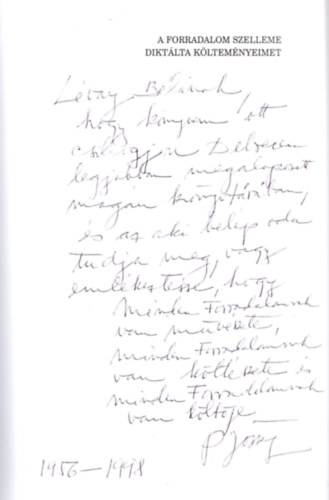 A FORRADALOM SZELLEME
DIKTÁLTA KÖLTEMÉNYEIMET
Lévay Bélának,
hogy könyvem ott
csillogjon Debrecen
legjobban megalapozott
magán könyvtárában,
és az aki belép oda
tudja meg, vagy
emlékeztesse, hogy
minden Forradalomnak
van művésze,
minden Forradalomnak
van költészete és
minden Forradalomnak
van költője
1956—1998